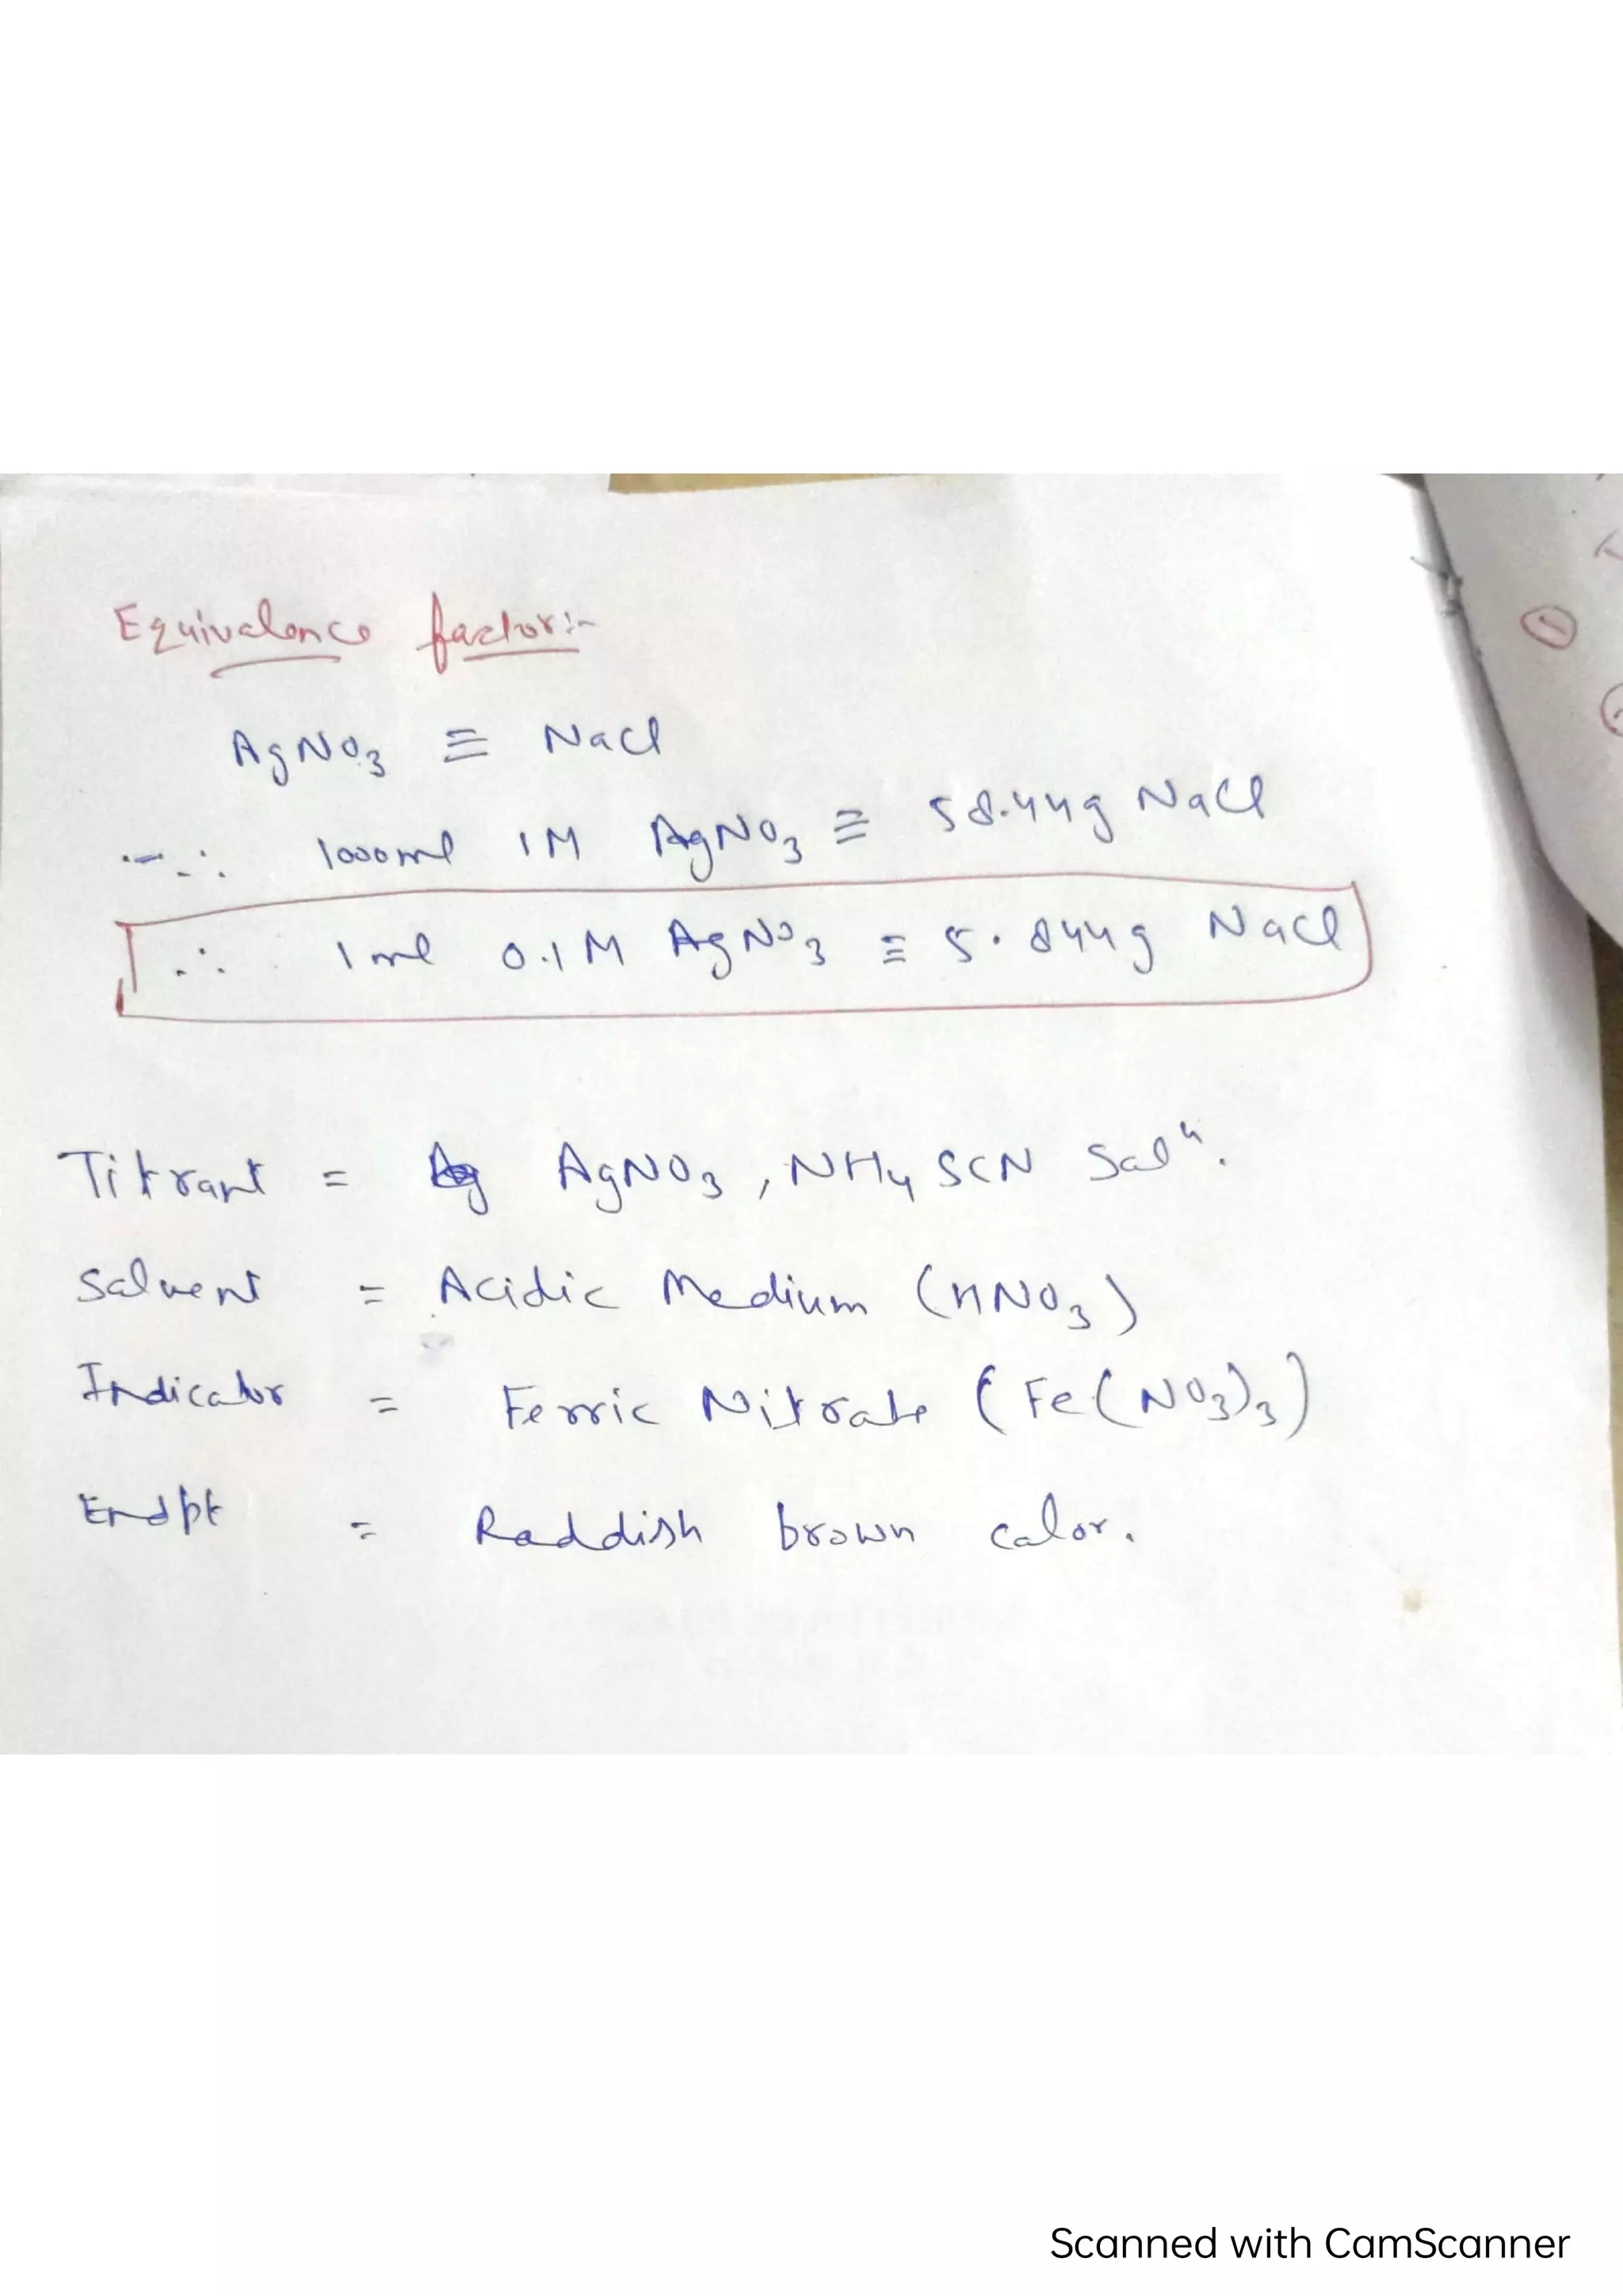 Equivalence factor:-
AgNO3 ≡ NaCl
∴ 1000ml 1M AgNO3 ≡ 58.44g NaCl
∴ 1ml 0.1M AgNO3 ≡ 5.844g NaCl
Titrant = Ag AgNO3, NH4 SCN Solⁿ.
Solvent = Acidic Medium (HNO3)
Indicator = Ferric Nitrate (Fe(NO3)3)
Endpt = Raddish brown color.
Scanned with CamScanner